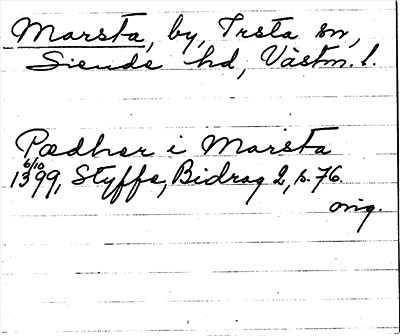 Marsta, by, Irsta sn,
Siende hd, Västm. l.
Pædher i Marsta
6/10
1399, Styffe, Bidrag 2, s. 76.
orig.